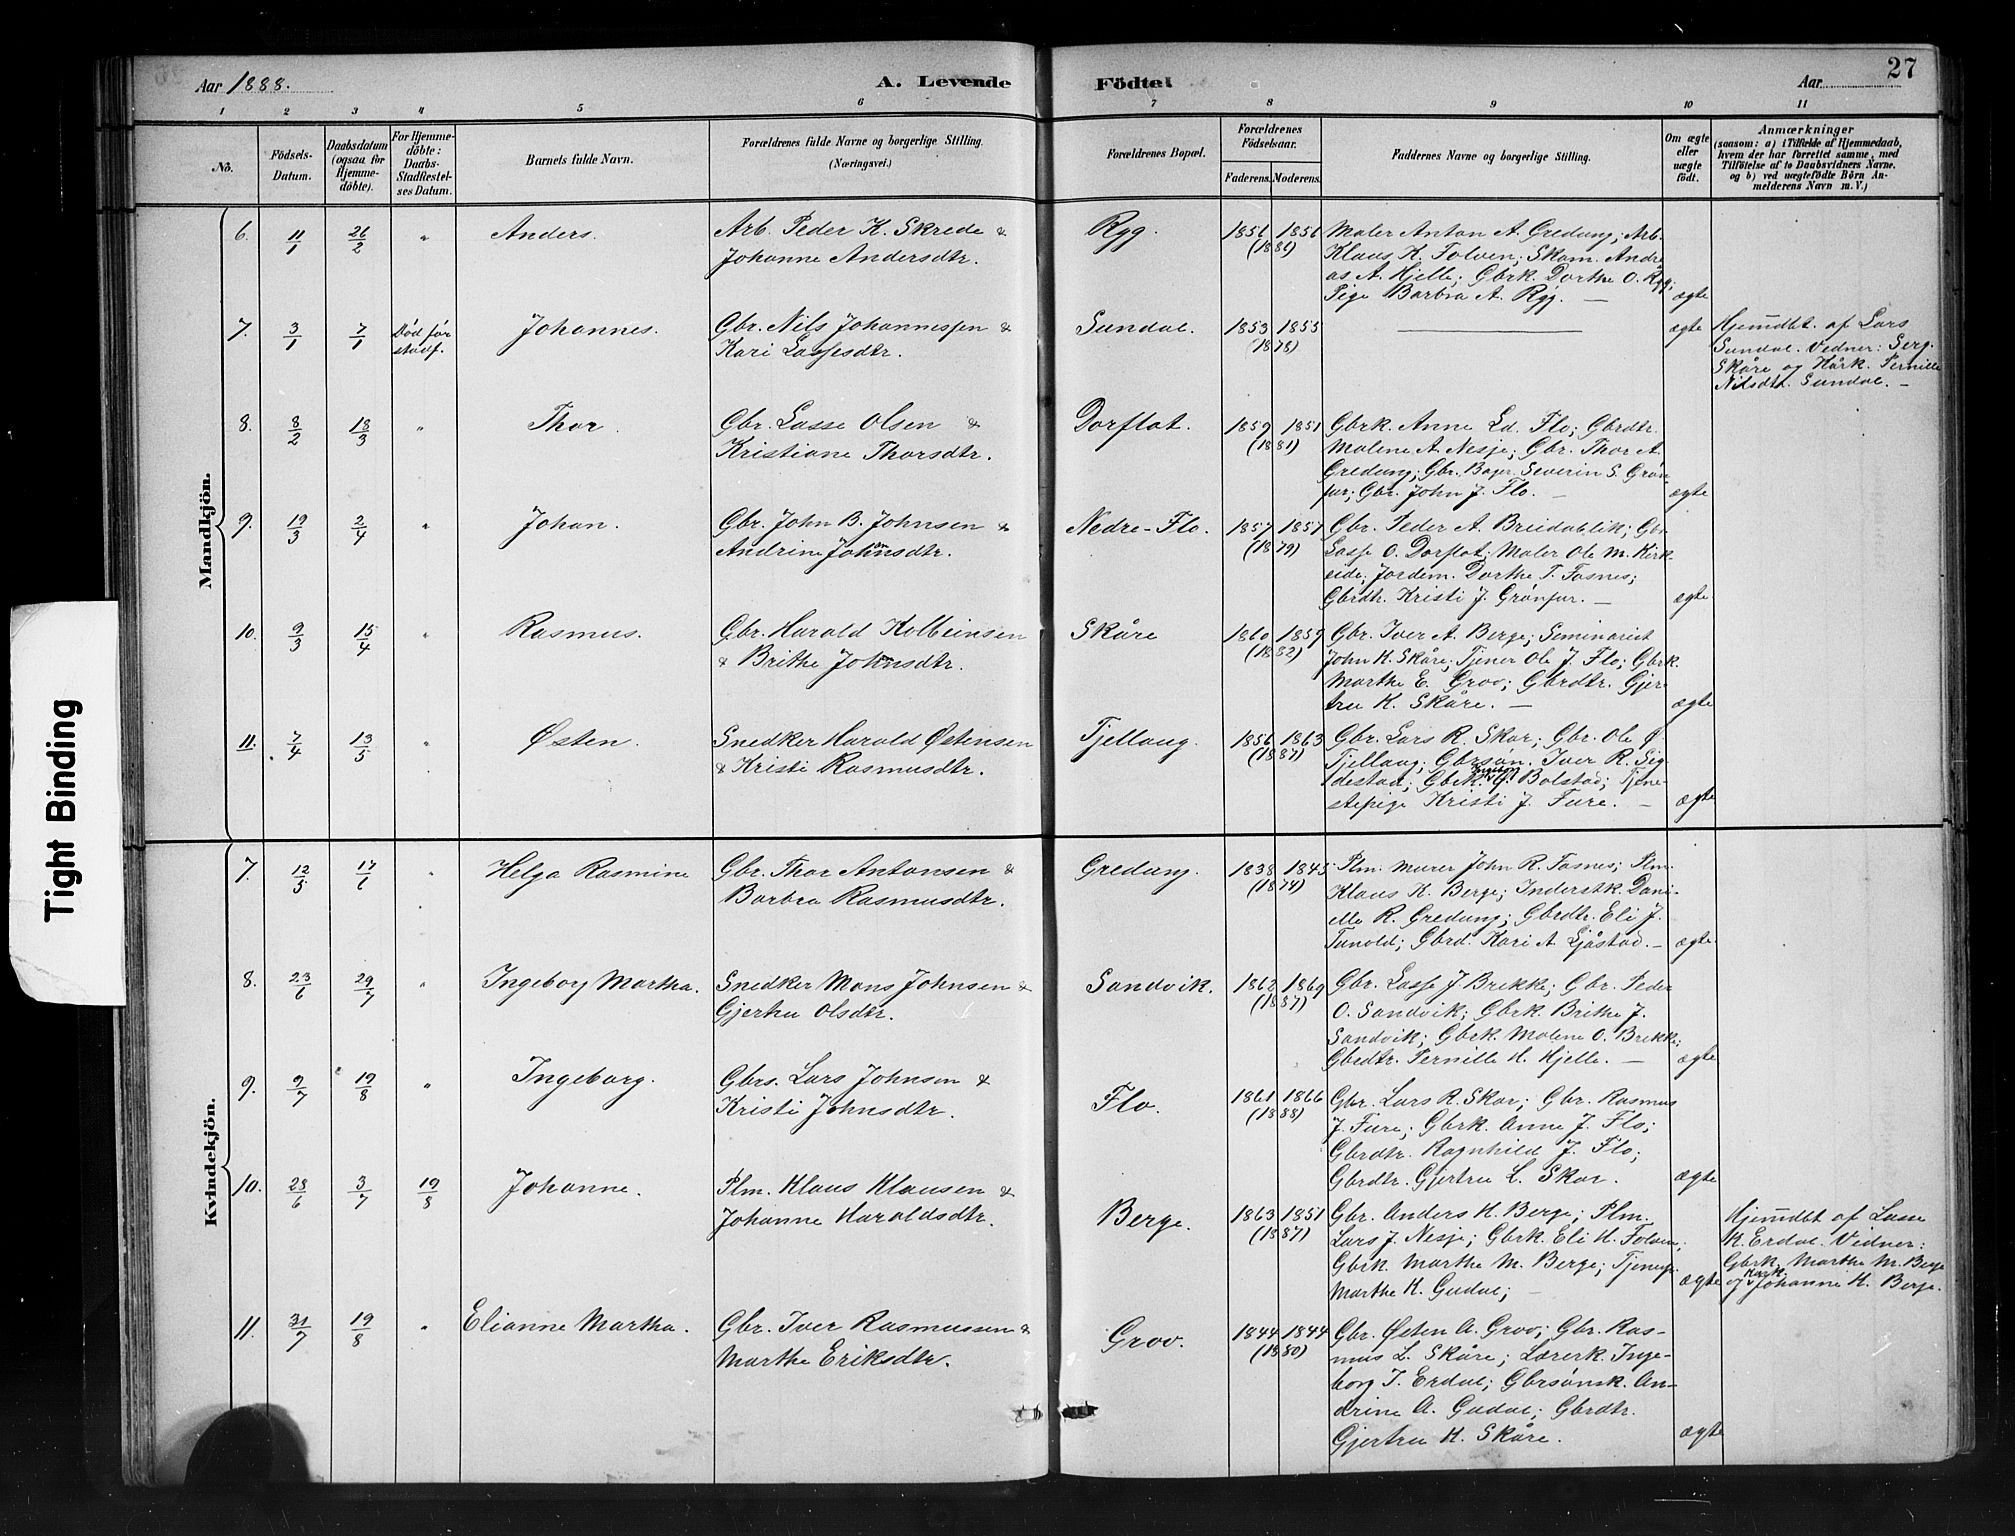 Aar 1888.
A. Levende
Födte.
Aar
27
1 2 3 4 5 6 7 8 9 10 11
No.
Födsels-
Datum.
Daabsdatum
(ogsaa for
Hjemme-
döbte).
For Hjemme-
döbte:
Daabs-
Stadfæstel-
ses Datum.
Barnets fulde Navn.
Forældrenes fulde Navne og borgerlige Stilling.
(Næringsvei.)
Forældrenes Bopæl.
Forældrenes
Födselsaar.
Faderens. Moderens.
Faddernes Navne og borgerlige Stilling.
Om ægte
eller
uægte
födt.
Anmærkninger
(saasom: a) i Tilfælde af Hjemmedaab,
hvem der har forrettet samme, med
Tilföielse af to Daabsvidners Navne.
og b) ved uægtefödte Börn An-
melderens Navn m. V.)
Tight Binding
Mandkjön.
6. 11/1 26/2 " Anders. Arb. Peder K. Skrede &
Johanne Andersdtr.
Rygg. 1856 1856
(1886)
Maler Anton A. Gredung; Arb.
Klaus K. Folven; Skom. Andre
as A. Hjelle; Gbrk. Dorthe O. Rygg;
Pige Barbra A. Rygg. — ægte
7. 3/1 7/1 Död før
stadf.
Johannes. Gbr. Nils Johannessen &
Kari Lassesdtr.
Sundal. 1853 1855
(1878)
ægte
Hjemdbt. af Lars
Sundal. Vedner: Serg.
Skåre og Hårk. Pernille
Nilsdtr. Sundal. —
8. 8/2 18/3 " Thor. Gbr. Lasse Olsen &
Kristiane Thorsdtr.
Dorflot. 1859 1851
(1881)
Gbrk. Anne Ld. Flo; Gbrdtr.
Malene A. Nesje; Gbr. Thor A.
Gredung; Gbr. Bager Severin S. Grön-
fur; Gbr. John J. Flo. — ægte
9. 19/3 2/4 " Johan. Gbr. John B. Johnsen &
Andrine Johnsdtr.
Nedre-Flo. 1857 1857
(1879)
Gbr. Peder A. Breidablik; Gbr
Lasse O. Dorflot; Maler Ole M. Kirk-
eide; Jordem. Dorthe T. Fosnes;
Gbrdtr. Kristi J. Grönfur. — ægte
10. 9/3 15/4 " Rasmus. Gbr. Harald Kolbeinsen
& Brithe Johnsdtr.
Skåre 1860 1859
(1882)
Gbr. Iver A. Berge; Seminarist
John K. Skåre; Tjener Ole J. Flo; Gbrk.
Marthe E. Grov; Gbrdtr. Gjer-
tru K. Skåre. — ægte
11. 7/4 13/5 " Østen. Snedker Harald Østensen
& Kristi Rasmusdtr.
Tjellaug. 1856 1863
(1887)
Gbr. Lars R. Skar; Gbr. Ole Ø
Tjellaug; Gbrsön. Iver R. Sig
destad; Gbrk. J. Bolstad; Tjene-
stepige Kristi J. Fure. — ægte
Kvindekjön.
7. 12/5 17/6 " Helga Rasmine Gbr. Thor Antonsen &
Barbra Rasmusdtr.
Gredung. 1838 1845
(1874)
Plm. Murer John R. Fosnes; Plm.
Klaus K. Berge; Inderstk. Dani-
elle R. Gredung; Gbrdtr. Eli J.
Tunold; Gbrd. Kari A. Sjåstad. — ægte
8. 23/6 29/7 " Ingeborg Martha. Snedker Mons Johnsen &
Gjertru Olsdtr.
Sandvik. 1862 1869
(1887)
Gbr. Lasse J. Brekke; Gbr. Peder
O. Sandvik; Gbrk. Brithe J.
Sandvik; Gbrk. Malene O. Brekke;
Gbrdtr. Pernille H. Hjelle. — ægte
9. 9/7 19/8 " Ingeborg. Gbrs. Lars Johnsen &
Kristi Johnsdtr.
Flo. 1861 1866
(1888)
Gbr. Lars R. Skar; Gbr. Rasmus
J. Fure; Gbrk. Anne J. Flo;
Gbrdtr. Ragnhild J. Flo;
Gbrdtr. Gjertru L. Skar. ægte
10. 28/6 3/7 19/8 Johanne. Plm. Klaus Klausen &
Johanne Haraldsdtr.
Berge. 1863 1851
(1887)
Gbr. Anders H. Berge; Plm.
Lars J. Nesje; Gbrk. Eli H. Folven;
Gbrk. Marthe M. Berge; Tjenep.
Marthe K. Gudal; — ægte
Hjemdbt af Lasse
K. Erdal. Vedner:
Gbrk. Marthe M. Berge
og Kårk. Johanne H. Berge.
11. 31/7 19/8 " Elianne Martha. Gbr. Iver Rasmussen &
Marthe Eriksdtr.
Grov. 1844 1844
(1880)
Gbr. Østen A. Grov; Gbr. Ras-
mus L. Skåre; Lærerk. Inge-
borg T. Erdal; Gbrsönsk. An-
drine A. Gudal; Gbrdtr.
Gjertru H. Skåre. ægte